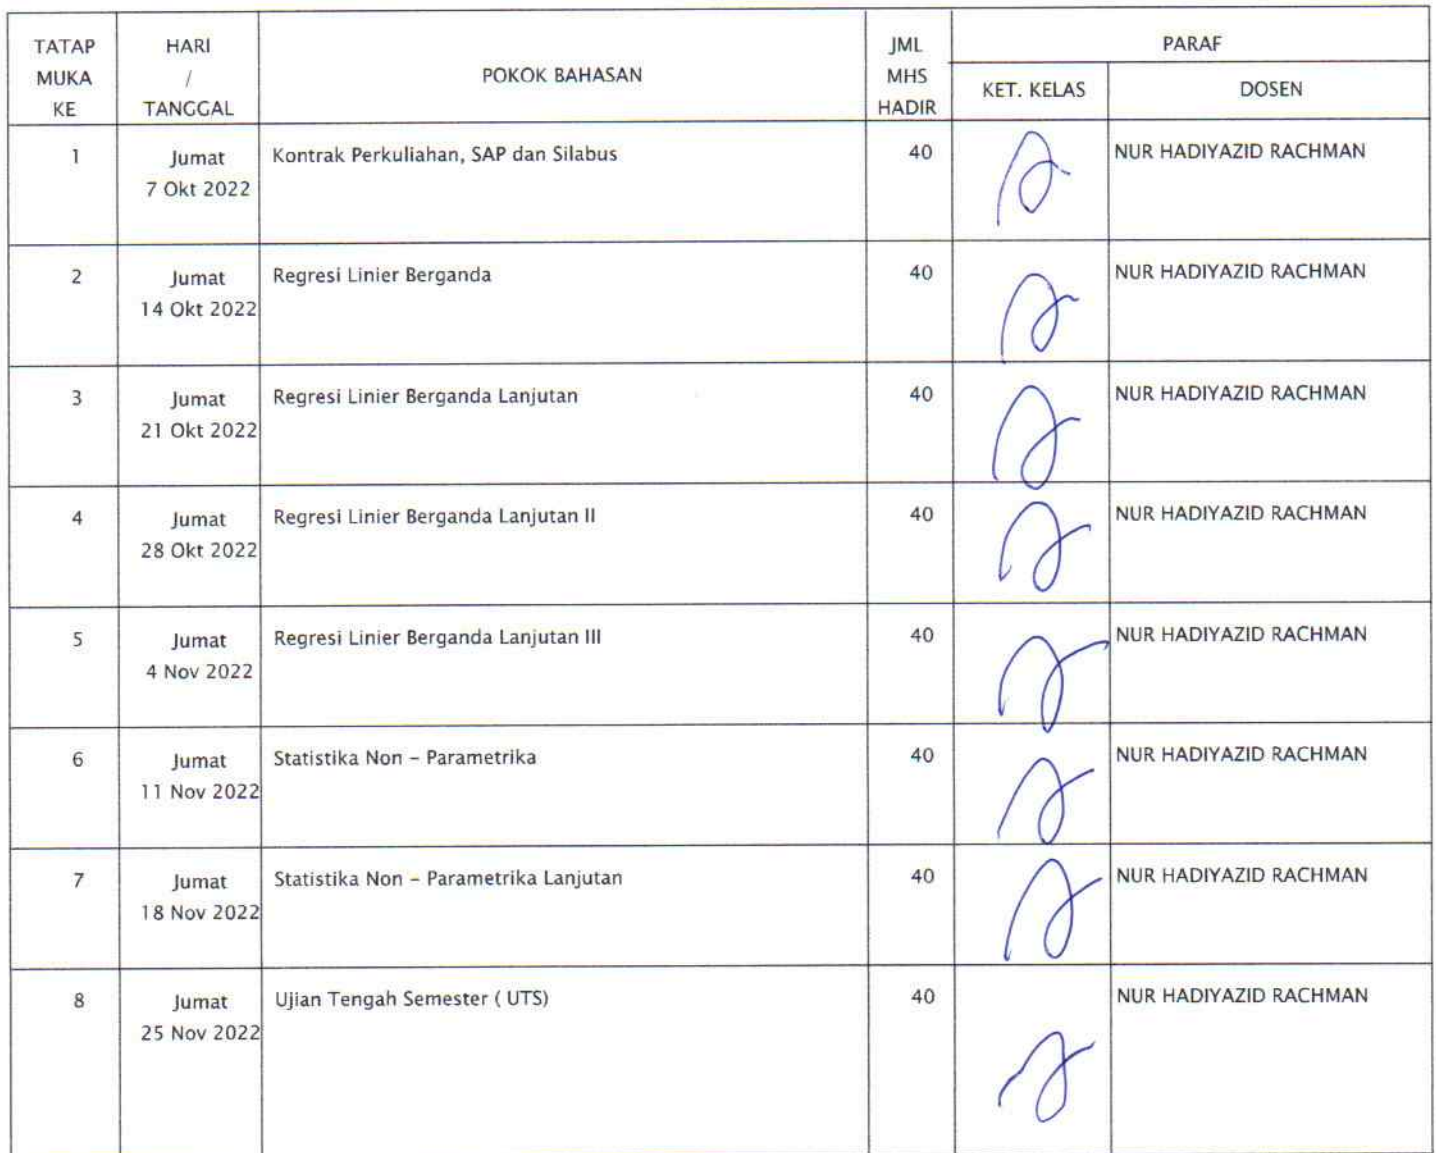 TATAP MUKA KE
HARI / TANGGAL
POKOK BAHASAN
JML MHS HADIR
PARAF
KET. KELAS
DOSEN
1
Jumat
7 Okt 2022
Kontrak Perkuliahan, SAP dan Silabus
40
NUR HADIYAZID RACHMAN
2
Jumat
14 Okt 2022
Regresi Linier Berganda
40
NUR HADIYAZID RACHMAN
3
Jumat
21 Okt 2022
Regresi Linier Berganda Lanjutan
40
NUR HADIYAZID RACHMAN
4
Jumat
28 Okt 2022
Regresi Linier Berganda Lanjutan II
40
NUR HADIYAZID RACHMAN
5
Jumat
4 Nov 2022
Regresi Linier Berganda Lanjutan III
40
NUR HADIYAZID RACHMAN
6
Jumat
11 Nov 2022
Statistika Non – Parametrika
40
NUR HADIYAZID RACHMAN
7
Jumat
18 Nov 2022
Statistika Non – Parametrika Lanjutan
40
NUR HADIYAZID RACHMAN
8
Jumat
25 Nov 2022
Ujian Tengah Semester ( UTS)
40
NUR HADIYAZID RACHMAN